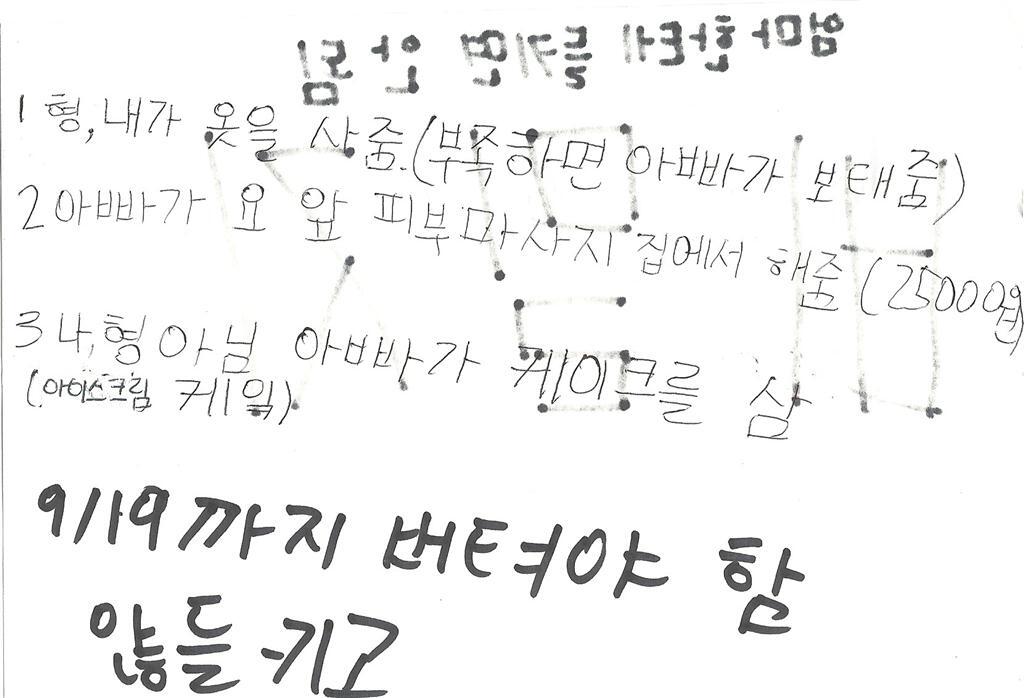 1 형,내가 옷을 사줌.(부족하면 아빠가 보태줌)
2아빠가 요 앞 피부마사지 집에서 해줌 (25000원)
3 나,형 아님 아빠가 케이크를 삼
(아이스크림 케잌)
9/19까지 버텨야 함
않들키고